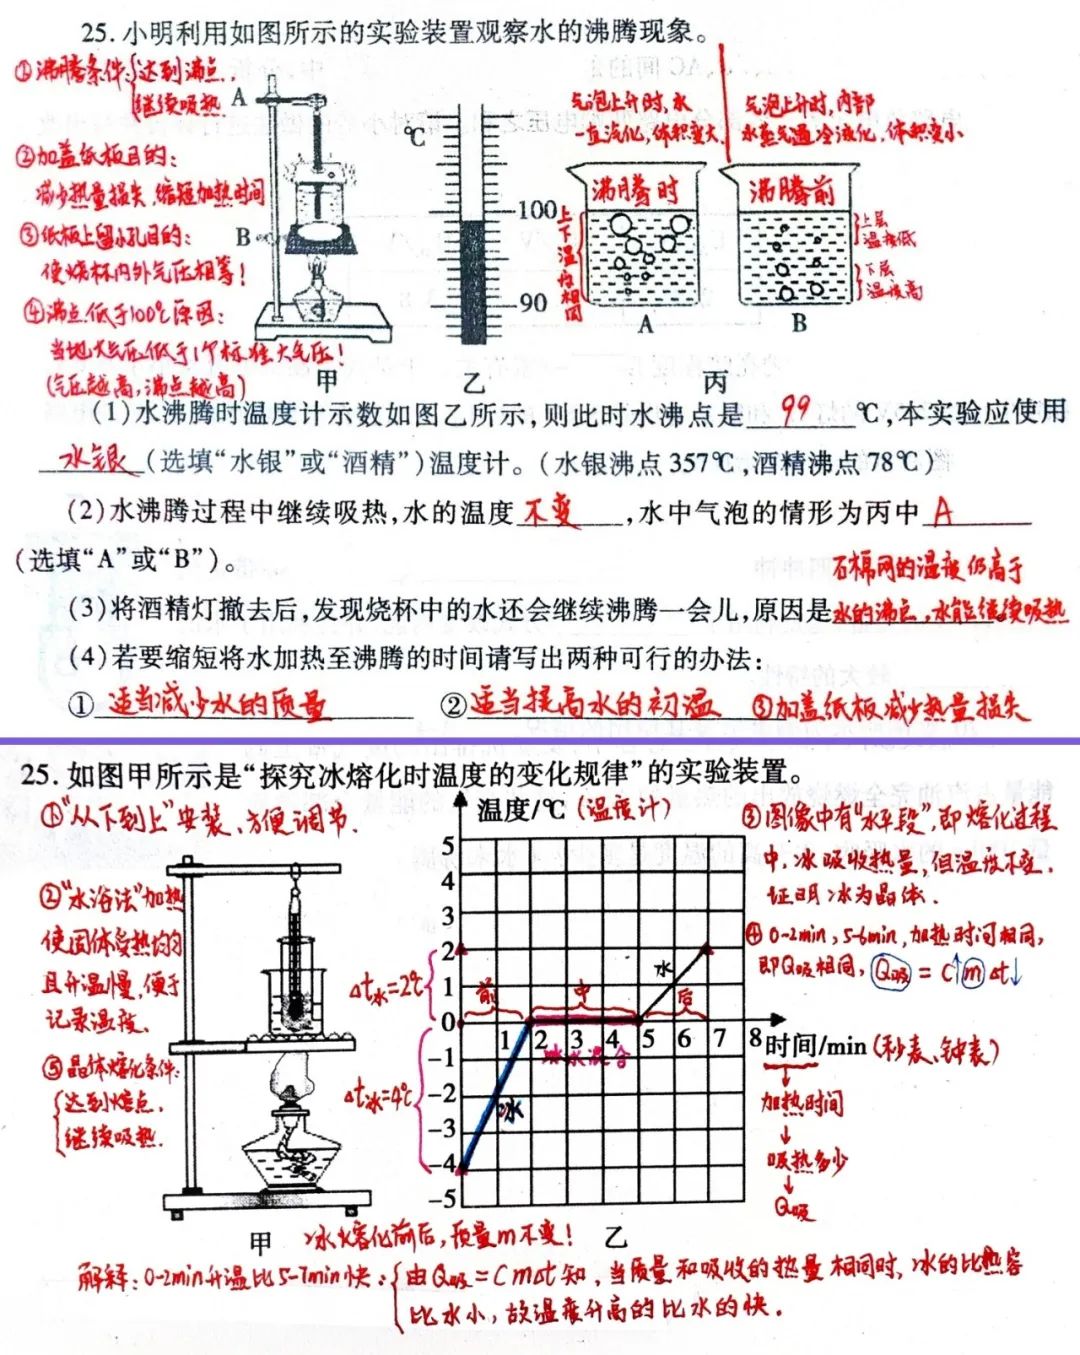 25. 小明利用如图所示的实验装置观察水的沸腾现象。
①沸腾条件:{达到沸点,
继续吸热
②加盖纸板目的:
减少热量损失,缩短加热时间
③纸板上留小孔目的:
使烧杯内外气压相等!
④沸点低于100℃原因:
当地大气压低于1个标准大气压!
(气压越高,沸点越高)
A
B
甲
℃
100
90
乙
气泡上升时,水
直汽化,体积变大.
气泡上升时,内部
水蒸气遇冷液化,体积变小
沸腾时
沸腾前
上下温度相同
上层
温度低
下层
温度高
A
B
丙
(1)水沸腾时温度计示数如图乙所示,则此时水沸点是 99 ℃,本实验应使用
水银(选填“水银”或“酒精”)温度计。(水银沸点357℃,酒精沸点78℃)
(2)水沸腾过程中继续吸热,水的温度 不变 ,水中气泡的情形为丙中 A
(选填“A”或“B”)。
石棉网的温度仍高于
(3)将酒精灯撤去后,发现烧杯中的水还会继续沸腾一会儿,原因是水的沸点,水能继续吸热。
(4)若要缩短将水加热至沸腾的时间请写出两种可行的办法:
① 适当减少水的质量 ②适当提高水的初温 ③加盖纸板减少热量损失
25. 如图甲所示是“探究冰熔化时温度的变化规律”的实验装置。
①“从下到上”安装、方便调节.
②“水浴法”加热
使固体受热均匀
且升温慢,便于
记录温度.
⑤晶体熔化条件:
{达到熔点,
继续吸热.
甲
温度/℃(温度计)
5
4
3
2
1
0
-1
-2
-3
-4
-5
1 2 3 4 5 6 7 8
时间/min(秒表、钟表)
Δt水=2℃
Δt冰=4℃
前
中
后
水
冰水混合
冰
乙
③图像中有“水平段”,即熔化过程
中,冰吸收热量,但温度不变.
证明冰为晶体.
④0-2min,5-6min,加热时间相同,
即Q吸相同,Q吸=C↑mΔt↓
↓
加热时间
↓
吸热多少
↓
Q吸
冰熔化前后,质量m不变!
解释:0-2min升温比5-7min快:{由Q吸=CmΔt知,当质量和吸收的热量相同时,冰的比热容
比水小,故温度升高的比水的快.